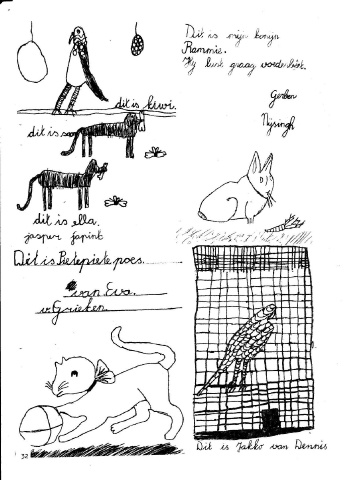 Dit is mijn konijn
Rammie.
Hij lust graag worteltjes.
Gerben
Nijsingh
dit is kiwi.
dit is
dit is ella.
jasper japink
Dit is Pietepiete poes.
van Eva.
v Grieken
Dit is Jakko van Dennis
32